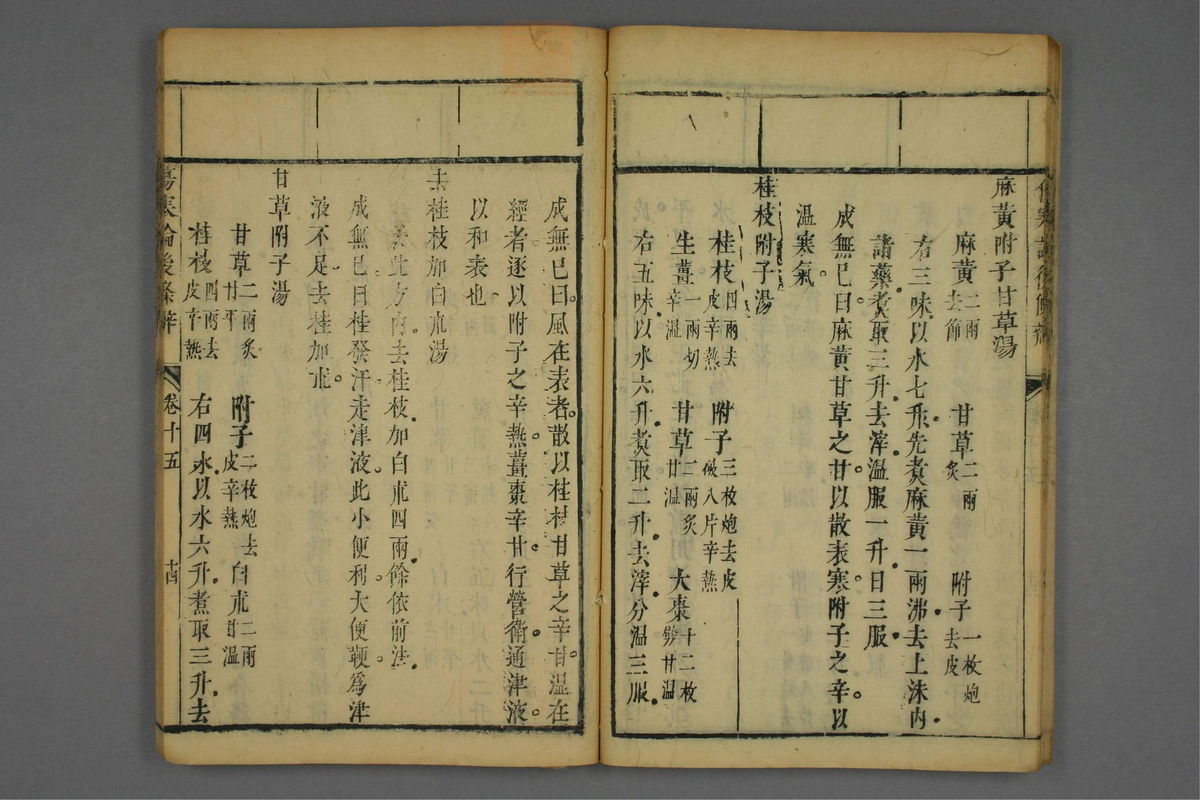 麻黃附子甘草湯
麻黃二兩去節 甘草二兩炙 附子一枚炮去皮
右三味以水七升先煑麻黃一二兩沸去上沫内
諸藥煑取三升去滓溫服一升日三服
成無已曰麻黃甘草之甘以散表寒附子之辛以
溫寒氣
桂枝附子湯
桂枝四兩去皮辛熱 附子三枚炮去皮破八片辛熱
生薑一兩切辛溫 甘草二兩炙甘溫 大棗十二枚劈甘溫
右五味以水六升煑取二升去滓分溫三服
成無已曰風在表者散以桂枝甘草之辛甘濕在
經者逐以附子之辛熱薑棗辛甘行營衛通津液
以和表也
去桂枝加白朮湯
於此方内去桂枝加白朮四兩餘依前法
成無已曰桂發汗走津液此小便利大便鞕爲津
液不足去桂加朮
甘草附子湯
甘草二兩炙甘平 附子二枚炮去皮辛熱 白朮二兩甘溫
桂枝四兩去皮辛熱 右四味以水六升煮取三升去
傷寒論後條辨 卷十五 十四